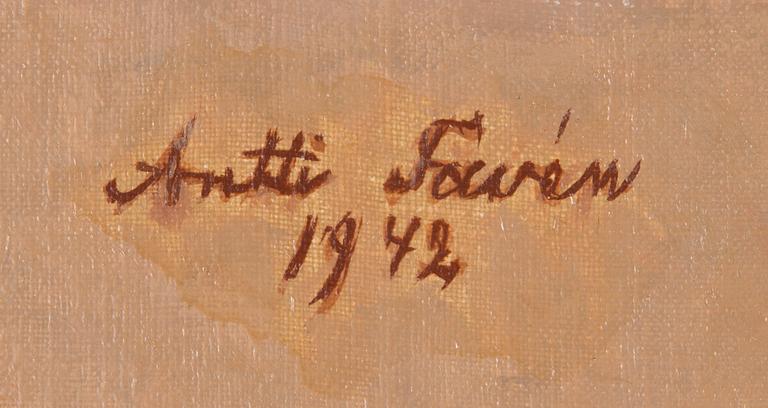 Antti Favén
1942